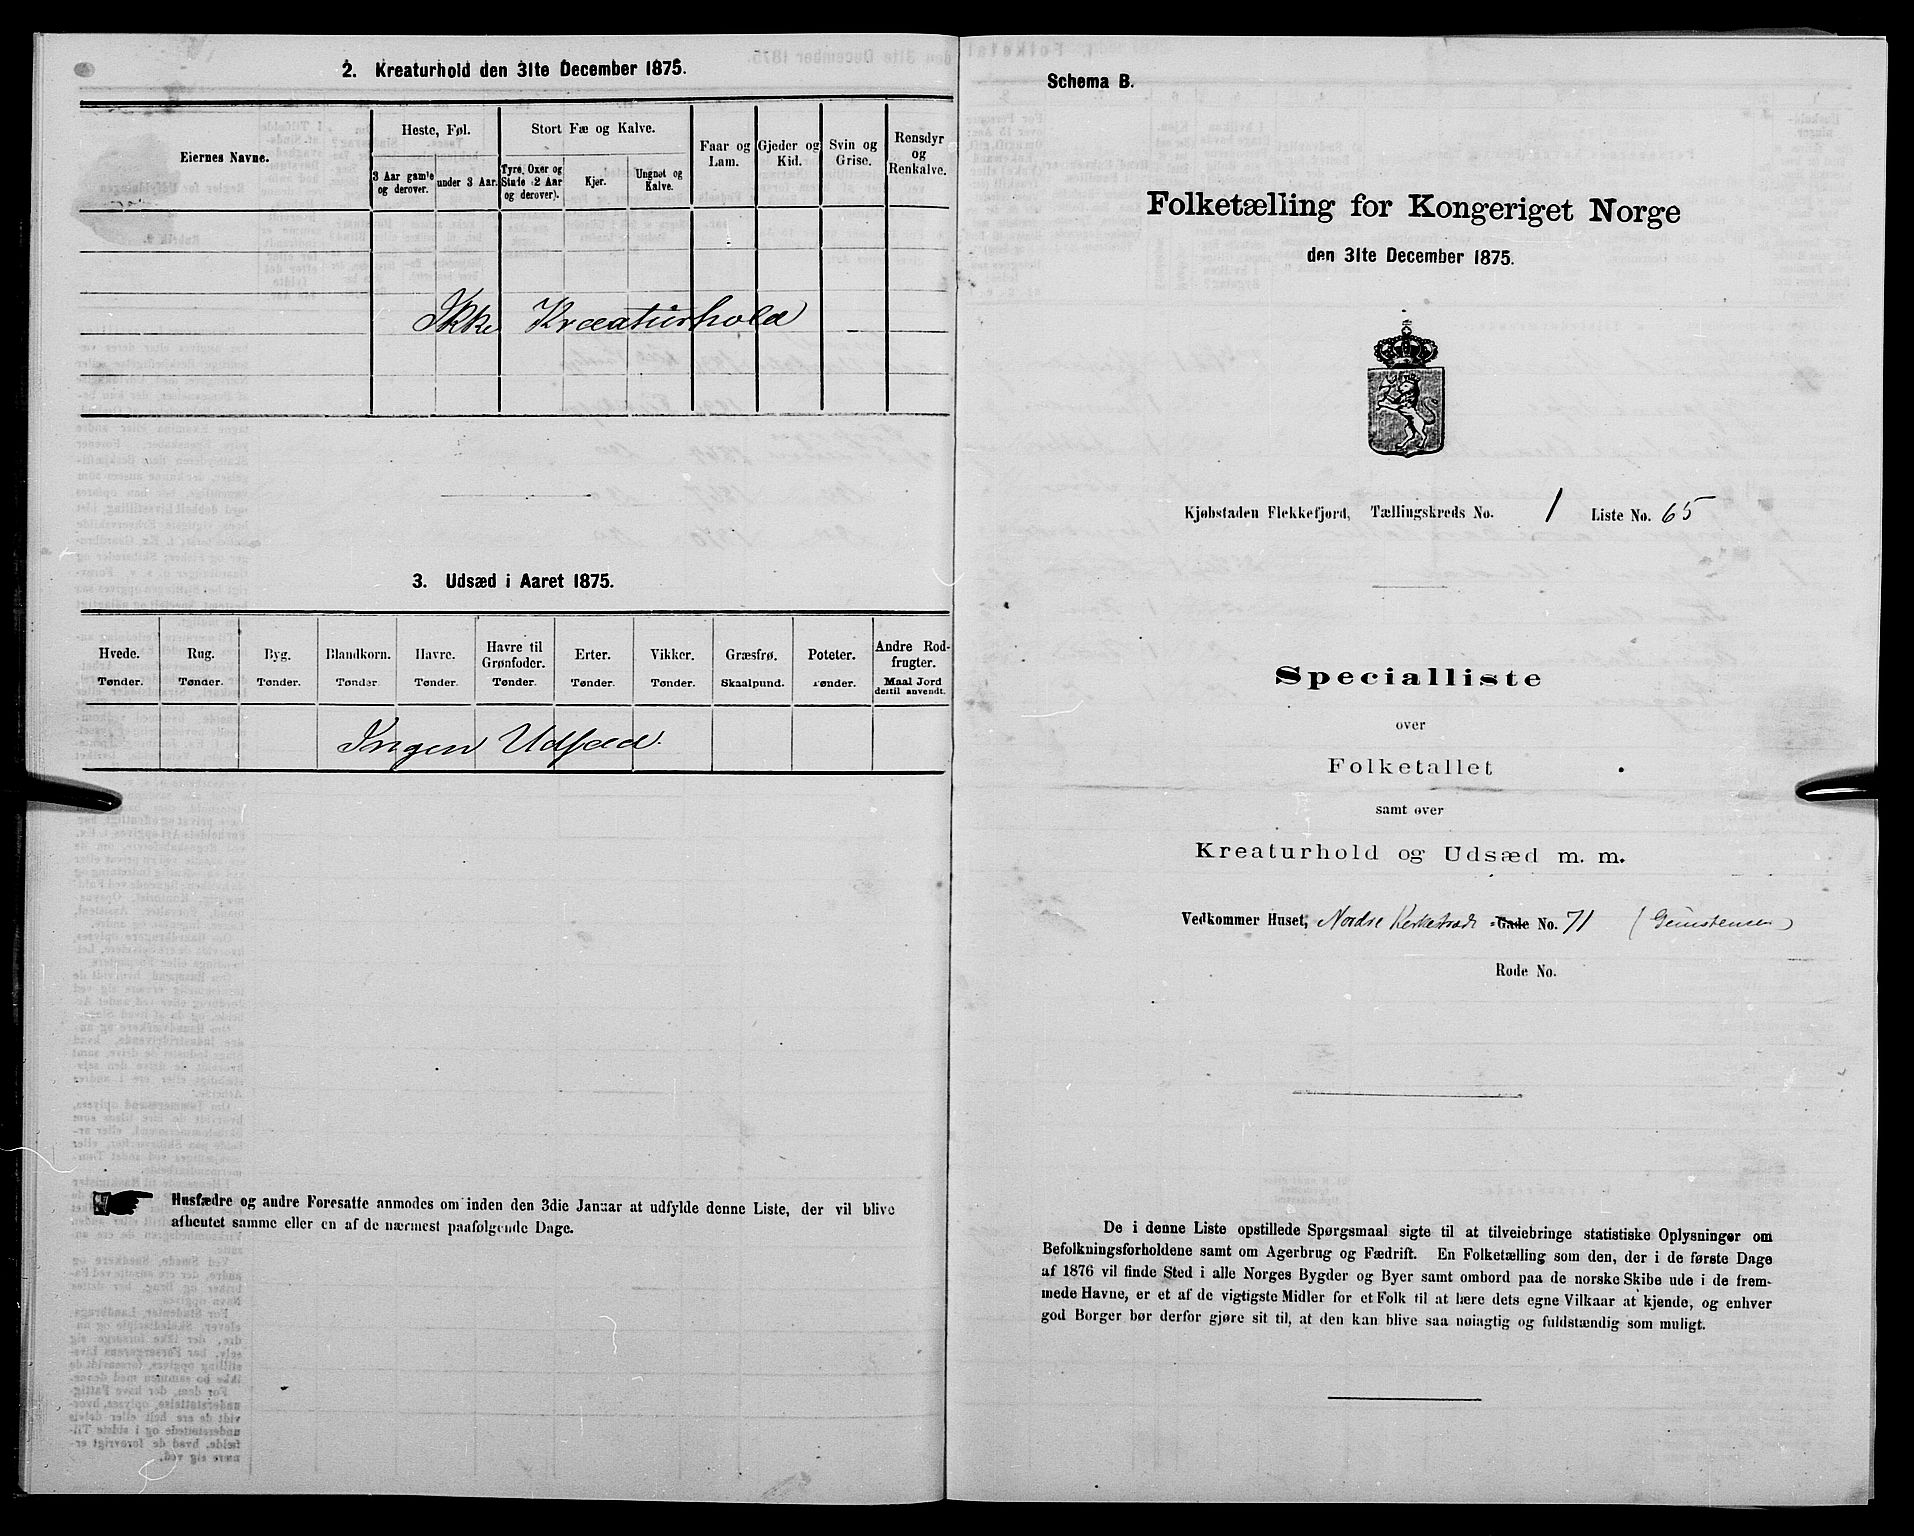 2. Kreaturhold den 31te December 1875.
Eiernes Navne.
Heste, Føl.
Stort Fæ og Kalve.
Faar og Lam.
Gjeder og Kid.
Svin og Grise.
Rensdyr og Renkalve.
3 Aar gamle og derover.
under 3 Aar.
Tyre, Oxer og Stude (2 Aar og derover).
Kjør.
Ungnøt og Kalve.
Ikke Kreaturhold
3. Udsæd i Aaret 1875.
Hvede. Rug. Byg. Blandkorn. Havre. Havre til Grønfoder. Erter. Vikker. Græsfrø. Poteter. Andre Rodfrugter.
Tønder. Tønder. Tønder. Tønder. Tønder. Tønder. Tønder. Tønder. Skaalpund. Tønder. Maal Jord dertil anvendt.
Ingen Udsæd.
Husfædre og andre Foresatte anmodes om inden den 3die Januar at udfylde denne Liste, der vil blive
afhentet samme eller en af de nærmest paafølgende Dage.
Schema B.
Folketælling for Kongeriget Norge
den 31te December 1875.
Kjøbstaden Flekkefjord, Tællingskreds No. 1 Liste No. 65
Specialliste
over
Folketallet
samt over
Kreaturhold og Udsæd m. m.
Vedkommer Huset, Nordre Kirkestræde Gade No. 71
Rode No.
De i denne Liste opstillede Spørgsmaal sigte til at tilveiebringe statistiske Oplysninger om
Befolkningsforholdene samt om Agerbrug og Fædrift. En Folketælling som den, der i de første Dage
af 1876 vil finde Sted i alle Norges Bygder og Byer samt ombord paa de norske Skibe ude i de frem-
mede Havne, er et af de vigtigste Midler for et Folk til at lære dets egne Vilkaar at kjende, og enhver
god Borger bør derfor gjøre sit til, at den kan blive saa nøiagtig og fuldstændig som muligt.